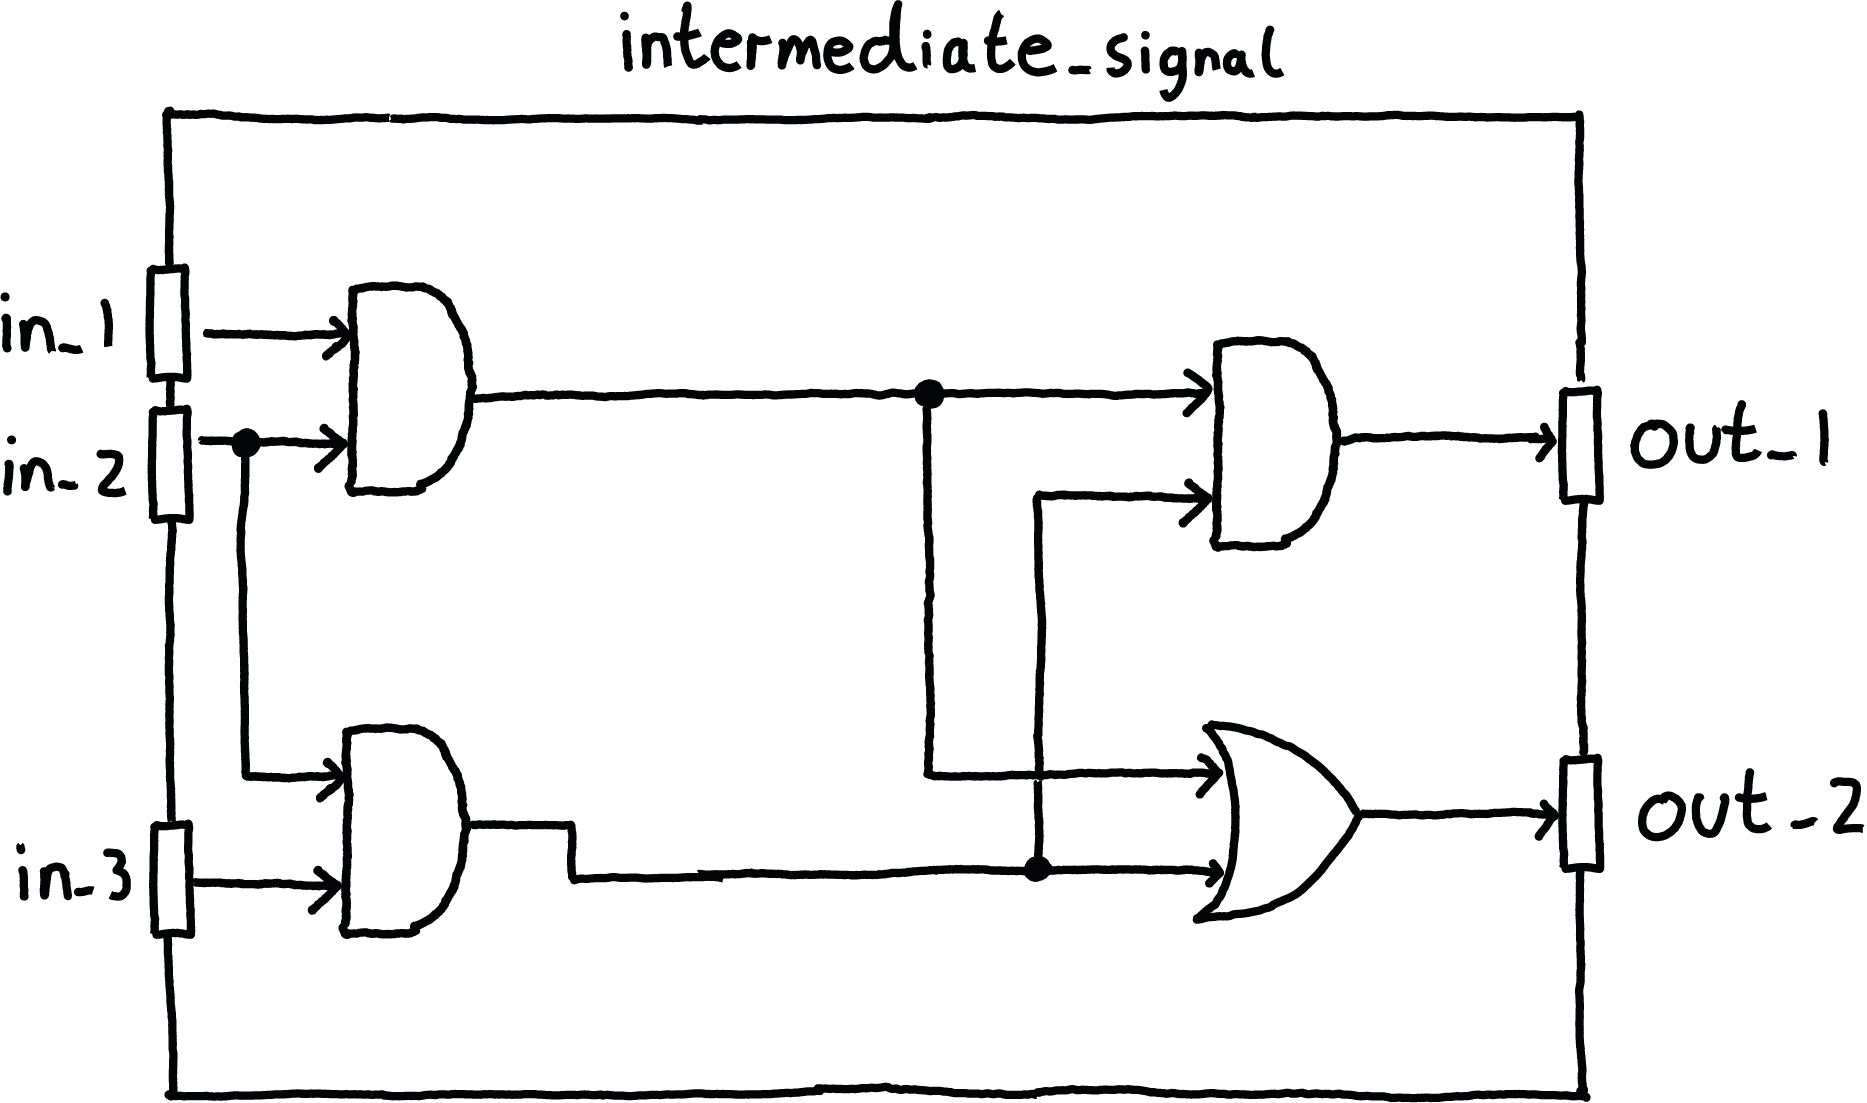 intermediate_signal
in_1
in_2
in_3
out_1
out_2